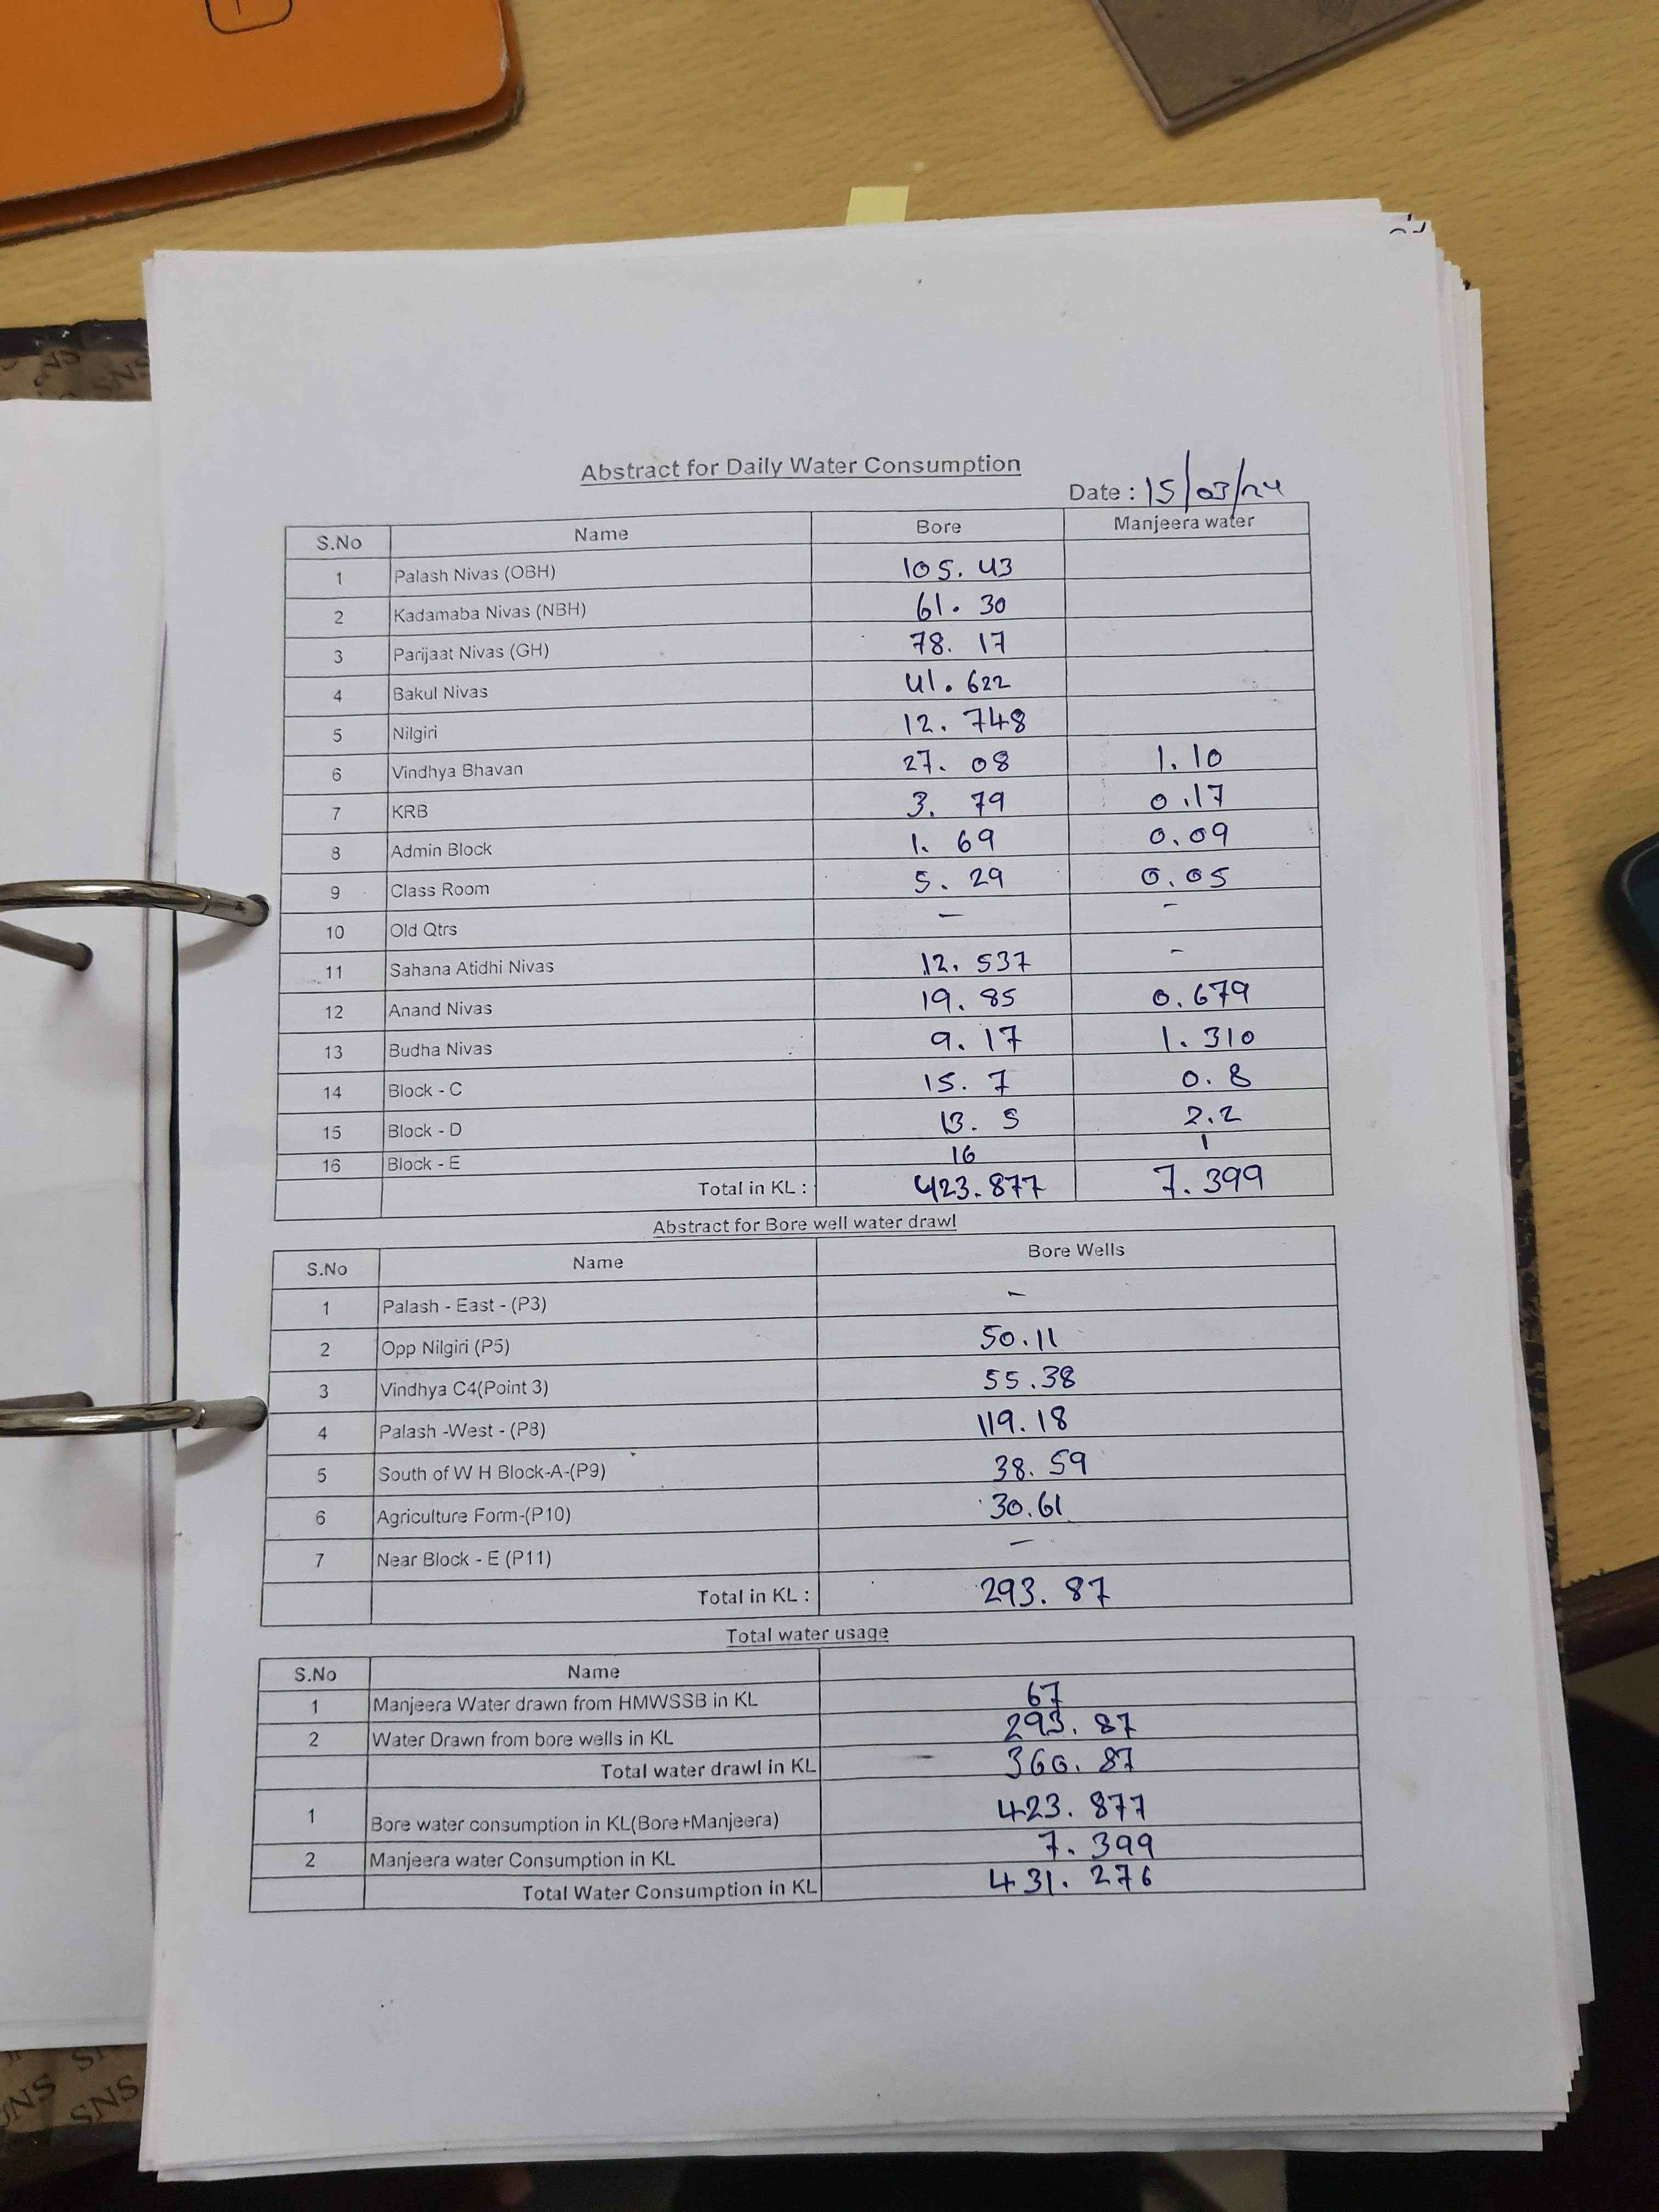 Abstract for Daily Water Consumption
Date : 15/03/24
S.No Name Bore Manjeera water
1 Palash Nivas (OBH) 105.43
2 Kadamaba Nivas (NBH) 61.30
3 Parijaat Nivas (GH) 78.17
4 Bakul Nivas 41.622
5 Nilgiri 12.748
6 Vindhya Bhavan 27.08 1.10
7 KRB 3.79 0.17
8 Admin Block 1.69 0.09
9 Class Room 5.29 0.05
10 Old Qtrs - -
11 Sahana Atidhi Nivas 12.537 -
12 Anand Nivas 19.85 0.679
13 Budha Nivas 9.17 1.310
14 Block - C 15.7 0.8
15 Block - D 13.5 2.2
16 Block - E 16 1
Total in KL : 423.877 7.399
Abstract for Bore well water drawl
S.No Name Bore Wells
1 Palash - East - (P3) -
2 Opp Nilgiri (P5) 50.11
3 Vindhya C4(Point 3) 55.38
4 Palash -West - (P8) 119.18
5 South of W H Block-A-(P9) 38.59
6 Agriculture Form-(P10) 30.61
7 Near Block - E (P11) -
Total in KL : 293.87
Total water usage
S.No Name
1 Manjeera Water drawn from HMWSSB in KL 67
2 Water Drawn from bore wells in KL 293.87
Total water drawl in KL 360.87
1 Bore water consumption in KL(Bore+Manjeera) 423.877
2 Manjeera water Consumption in KL 7.399
Total Water Consumption in KL 431.276
SNS
SNS